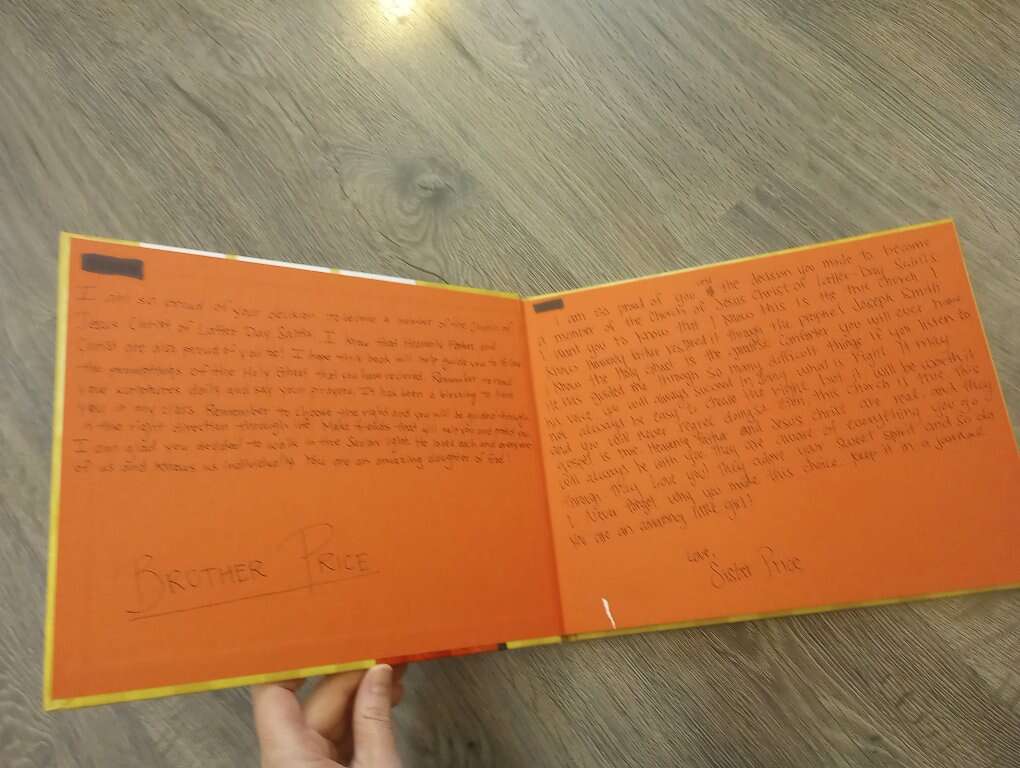 I am so proud of your decision to become a member of the Church of
Jesus Christ of Latter Day Saints. I know that Heavenly Father and
Christ are also proud of you too! I hope this book will help guide you to follow
the promptings of the Holy Ghost that you have received. Remember to read
your scriptures daily and say your prayers. It has been a blessing to have
you in my class. Remember to choose the right and you will be guided
in the right direction through life. Make friends that will
I am glad you decided to walk in the Savior path. He loves each and every one
of us and knows us individually. You are an amazing daughter of
BROTHER PRICE
I am so proud of you and the decision you made to become
a member of the Church of Jesus Christ of Latter-Day Saints
I want you to know that I know this is the true church. I
know Heavenly Father restored it through the prophet Joseph Smith
I know the Holy Ghost is the greatest Comforter you will ever have
He has guided me through so many difficult things if you listen to
his voice you will always succeed in doing what is right. It may
not always be easy to choose the right but it will be worth it
and you will never regret doing it. This church is true this
gospel is true Heavenly Father and Jesus Christ are real and they
will always be with you. They are aware of everything you go
through They love you! They adore your sweet spirit and so do
I. Never forget why you made this choice... keep it in a journal
You are an amazing little girl!
Love,
Sister Price